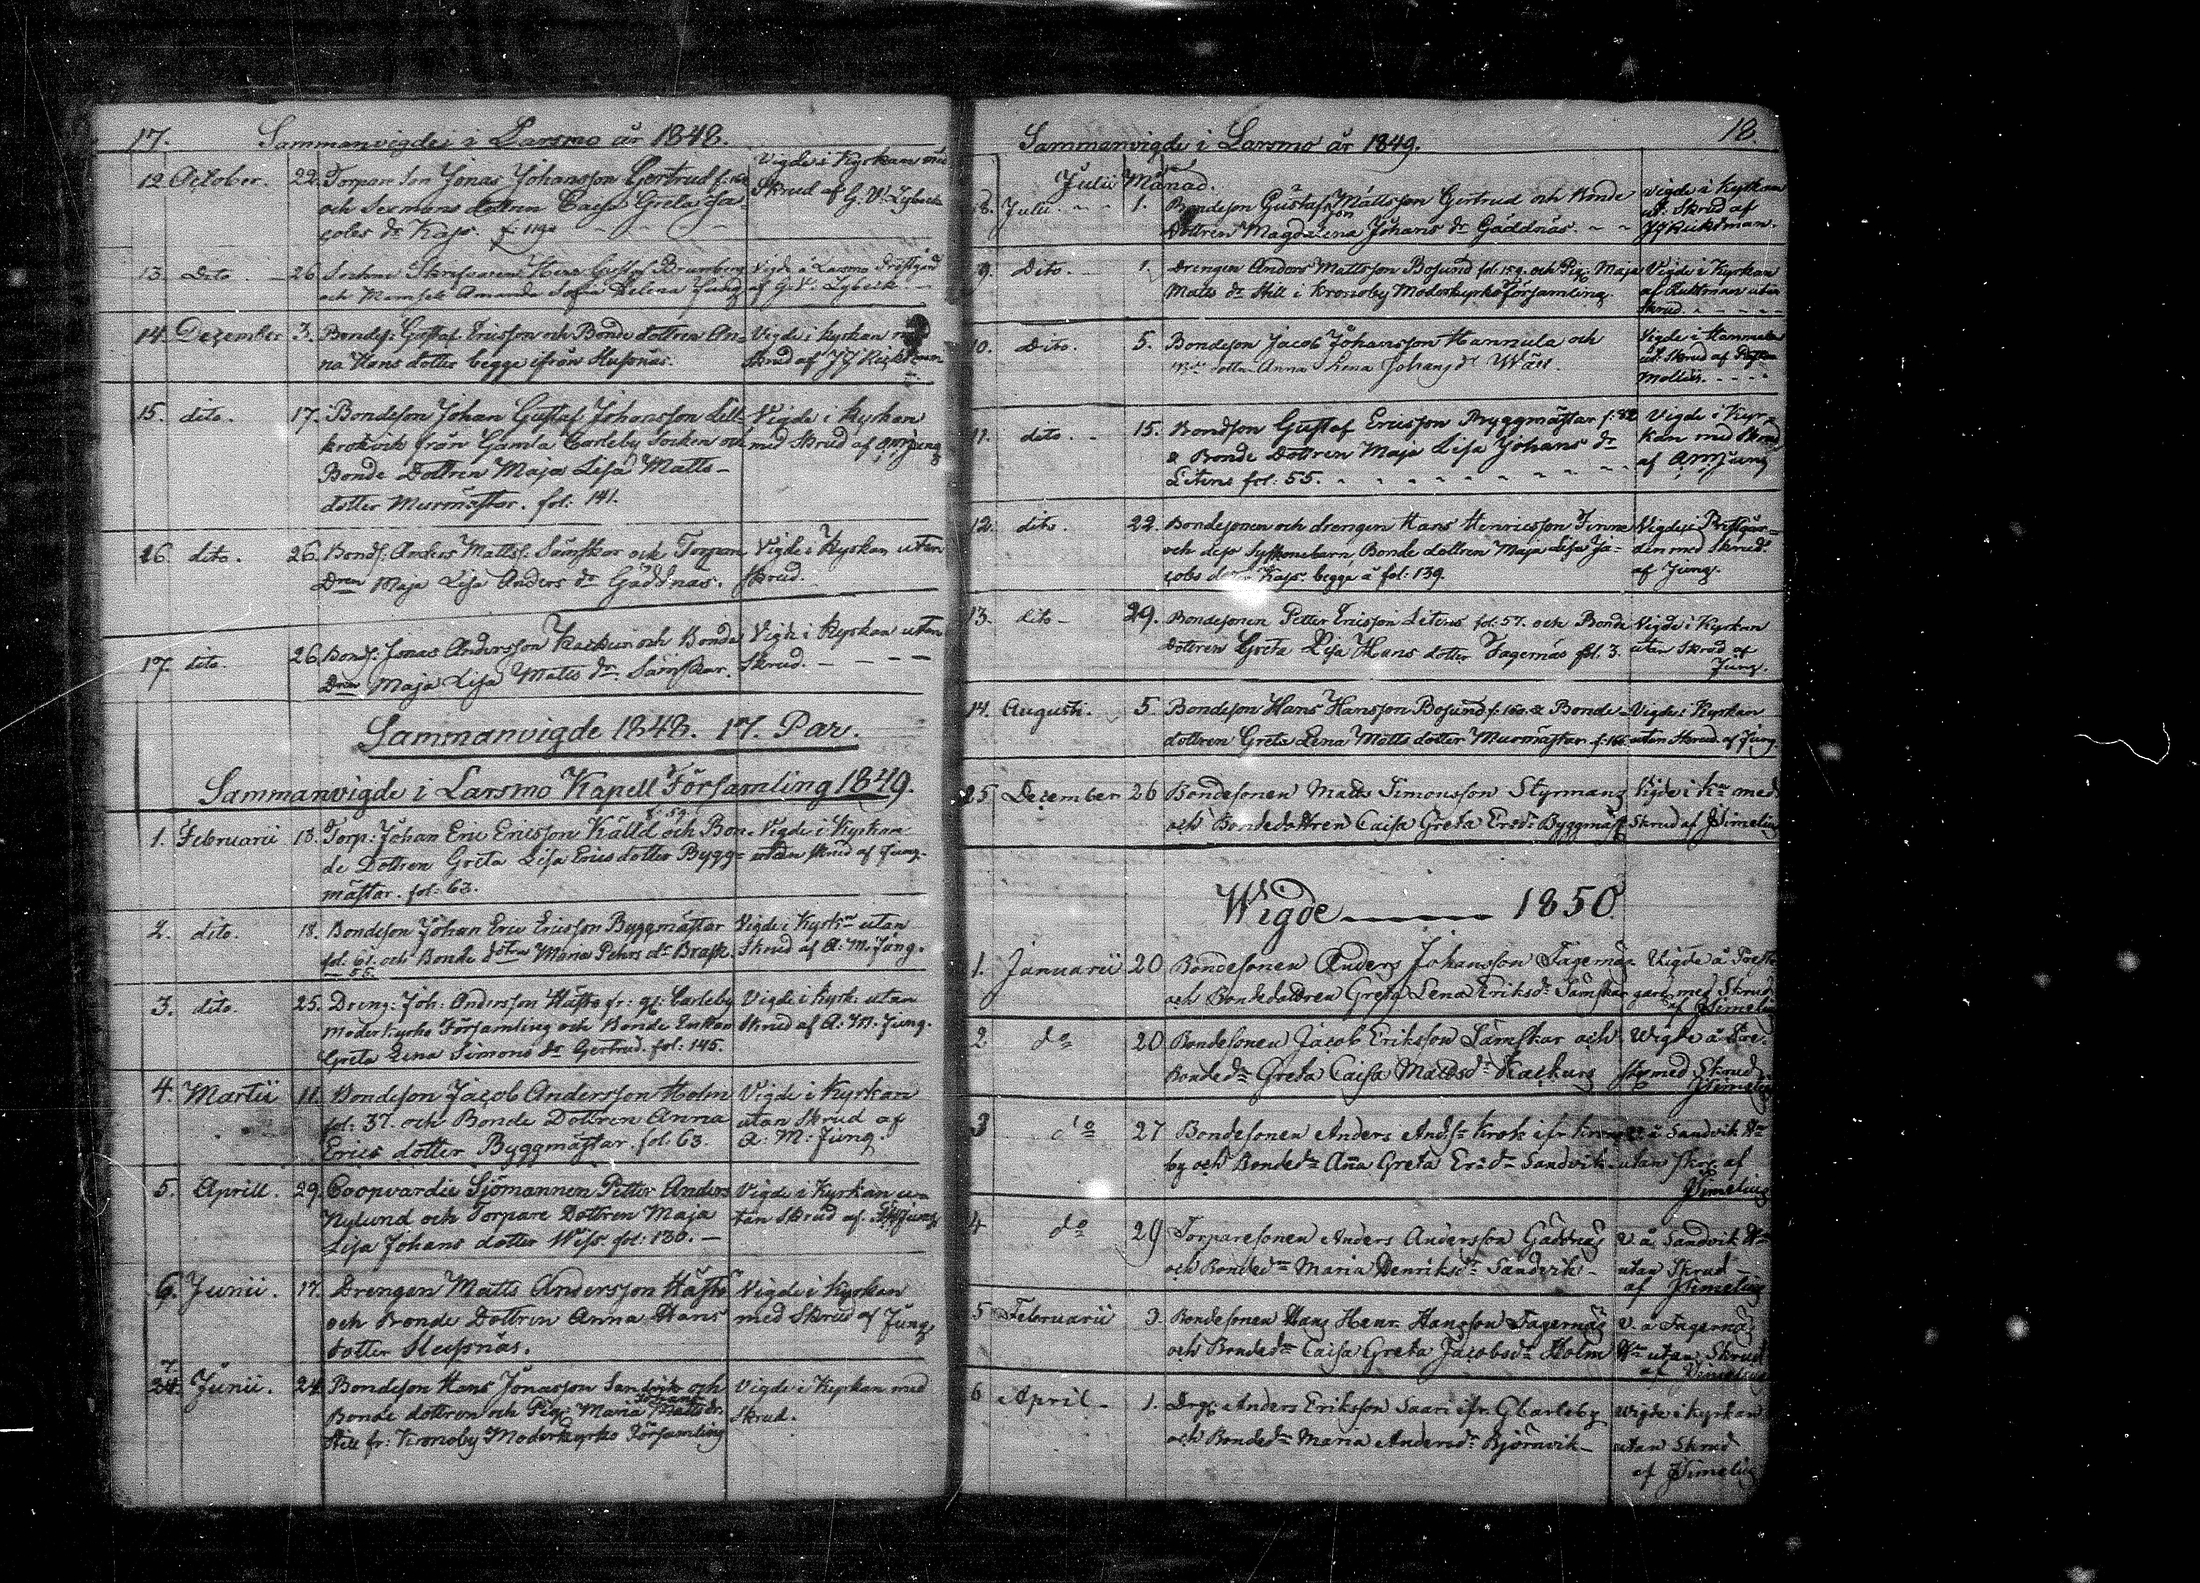 17. Sammanvigde i Larsmo år 1848.
12 October. 22. Torpare Son Jonas Johansson Gertrud
och Sexmans dottren Caisa Greta Ja-
cobs dr Kaps.
Vigde i Kyrkan
Skrud af G. V. Lybeck
13. Dito 26
och Mamsell Amanda Sofia Helena
Vigde å Larsmo Prestgård
af G. V. Lybeck
14. December 3. Bondes. Gustaf Ericsson och Bonde dottren An-
na Hans dotter begge ifrån
Vigde i kyrkan
Skrud af
15. dito. 17. Bondeson Johan Gustaf Johansson Lill
krokvik från Gamla Carleby Socken och
Bonde Dottren Maja Lisa Matts-
dotter Murmästar. fol: 141.
Vigde i Kyrkan
med Skrud af A. M. Jung
16. dito. 26. Bonds. Anders Matts. Sämskar och Torpare
Dren Maja Lisa Anders dr Gäddnäs.
Vigde i Kyrkan utan
Skrud.
17. dito. 26. Bonds. Jonas Andersson Kackur och Bonde
Dren Maja Lisa Matts dr. Sämskar.
Vigde i Kyrkan utan
Skrud. - - - -
Sammanvigde 1848. 17. Par.
Sammanvigde i Larsmo Kapell Församling 1849.
f. 59.
1. Februarii 18. Torp: Johan Eric Ericsson Källd och Bon-
de Dottren Greta Lisa Erics dotter Bygg-
mästar. fol: 63.
Vigde i Kyrkan
utan skrud af Jung.
2. dito. 18. Bondeson Johan Eric Ericsson Byggmästar
fol. 61. och Bonde dottren Maria Pehrs dr Brask.
55.
Vigde i Kyrkn utan
Skrud af A. M. Jung.
3. dito. 25. Dreng: Joh: Andersson Hästö fr: gl: Carleby
Moder kyrko Församling och Bonde Enkan
Greta Lena Simons dr Gertrud. fol: 145.
Vigde i Kyrk: utan
Skrud af A. M. Jung.
4. Martii 11. Bondeson Jacob Andersson Holm
fol: 37. och Bonde Dottren Anna
Erics dotter Byggmästar. fol: 63.
Vigde i Kyrkan
utan Skrud af
A: M: Jung
5. Aprill. 29. Coopvardie Sjömannen Petter Anders
Nylund och Torpare Dottren Maja
Lisa Johans dotter Wiss. fol: 130. -
Vigde i Kyrkan u-
tan Skrud af Jung
6. Junii. 17. Drengen Matts Andersson Hästö
och Bonde Dottren Anna Hans
dotter
Vigde i Kyrkan
med Skrud af Jung
7. Junii. 24. Bondeson Hans Jonasson Sandvik och
Bonde dottren och Pig: Maria Matts dr.
Still fr: Kronoby Moderkyrko Församling
Vigde i Kyrkan med
Skrud.
18.
Sammanvigde i Larsmo år 1849.
Julii Månad.
8. Julii. - - 1. Bondeson Gustaf Mattsson Gertrud och Bonde
Dottren Magdalena Johans dr Gäddnäs. - -
Vigde i Kyrkan
ut: Skrud af
9. Dito. 1. Drengen Anders Mattsson Bosund fol: 159. och Pig: Maja
Matts dr Still i Kronoby Moderkyrko församling.
Vigde i Kyrkan
af utan
Skrud. - - - -
10. Dito. 5. Bondeson Jacob Johansson Hannula och
dottr. Anna Lena Johans dr
Vigde i Hannula
ut: Skrud af
11. dito. - 15. Bondson Gustaf Ericsson Byggmästar f: 82
& Bonde Dottren Maja Lisa Johans dr
Litens fol: 55.
Vigde i Kyr-
kan med Skrud
af A. M. Jung
12. dito. 22. Bondesonen och drengen Hans Henricsson Finne
och dess Syskonebarn Bonde dottren Maja Lisa Ja-
cobs Kaps. begge å fol: 139.
Vigde i Prestgår-
den med Skrud.
af Jung.
13. dito - 29. Bondesonen Petter Ericsson Litens fol: 57. och Bonde
Dottren Greta Lisa Hans dotter Fagernäs fol. 3.
Vigde i Kyrkan
utan Skrud af
Jung.
14. Augusti. 5. Bondeson Hans Hansson Bosund f. 160. & Bonde-
dottren Greta Lena Matts dotter Murmästar
Vigde i Kyrkan
utan Skrud af Jung.
15 December 26 Bondesonen Matts Simonsson Styrmans
och Bondedottren Caisa Greta Ersdr Byggmäst
Vigde i Kn med
Skrud af Simelius
Wigde 1850.
1. Januarii 20 Bondesonen Anders Johansson Fagernäs
och Bondedottren Greta Lena Eriksdr Sämskar
Vigde å Prest-
gård med Skrud
af Simelius
2 do 20 Bondesonen Jacob Eriksson Sämskar och
Bondedr Greta Caisa Mattsdr Kackurs
Wigde å
med Skrud
Simelius
3 do 27 Bondesonen Anders Anders. Krok ifr. Krono
by och Bondedr Anna Greta Ersdr Sandvik
å Sandvik Hn
utan skr: af
Simelius
4 do 29 Torparesonen Anders Andersson Gäddnäs
och Bondedr Maria Henriksdr Sandvik -
V. å Sandvik Hn
utan Skrud
af Simelius
5 Februarii 3 Bondesonen Hans Henr. Hansson Fagernäs
och Bondedr Caisa Greta Jacobsdr Holm
V. å Fagernäs
Hn utan Skrud
af Simelius
6 April - 1. Drgn Anders Eriksson Saari ifr. Gl Carleby
och Bondedr Maria Andersdr Björnvik -
Wigde i kyrkan
utan Skrud
af Simelius